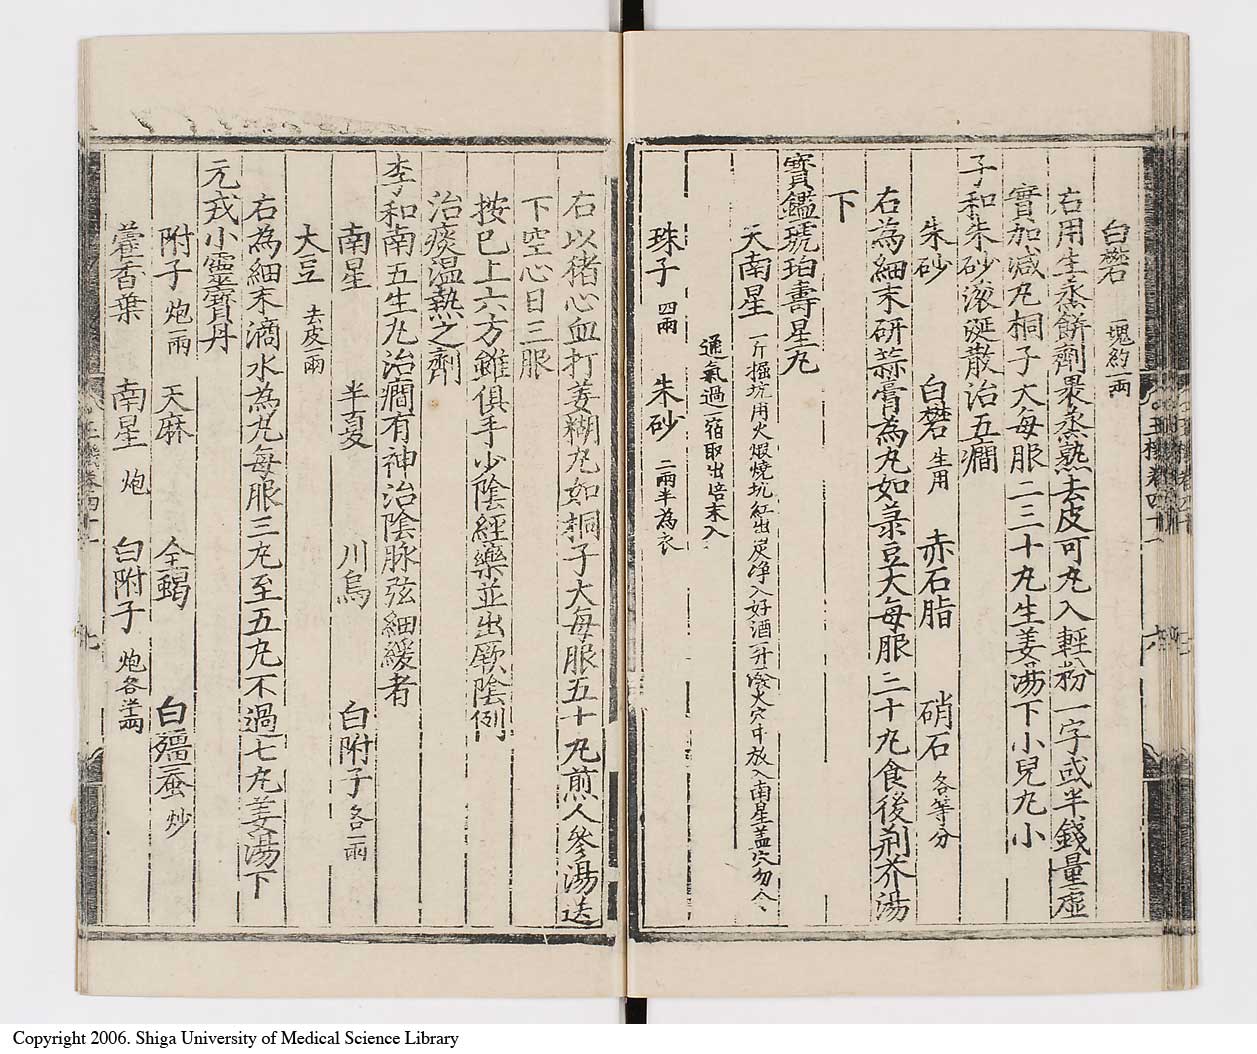 白礬 一塊約一兩
右用生蒸餅劑裹蒸熟去皮可丸入輕粉一字或半錢量虛
實加減丸桐子大每服二三十丸生姜湯下小兒丸小
子和朱砂滚涎散治五癎
朱砂 白礬 生用 赤石脂 硝石 各等分
右為細末研蒜膏為丸如菉豆大每服二十丸食後荆芥湯
下
寳鑑琥珀壽星丸
天南星 一斤掘坑用火煅燒坑紅出炭净入好酒一斤 火穴中放入南星盖穴勿令
通氣過一宿取出焙末入
珠子 四兩 朱砂 二兩半為衣
右以猪心血打姜糊丸如桐子大每服五十丸煎人參湯送
下空心日三服
按已上六方雖俱手少陰經藥並出厥陰例
治痰溫熱之劑
李和南五生丸治癎有神治陰脉弦細緩者
南星 半夏 川烏 白附子 各一兩
大豆 去皮一兩
右為細末滴水為丸每服三丸至五丸不過七丸姜湯下
元戎小靈寳丹
附子 炮一兩 天麻 全蝎 白殭蚕 炒
藿香葉 南星 炮 白附子 炮各半兩
玉機卷四十一
七
Copyright 2006. Shiga University of Medical Science Library